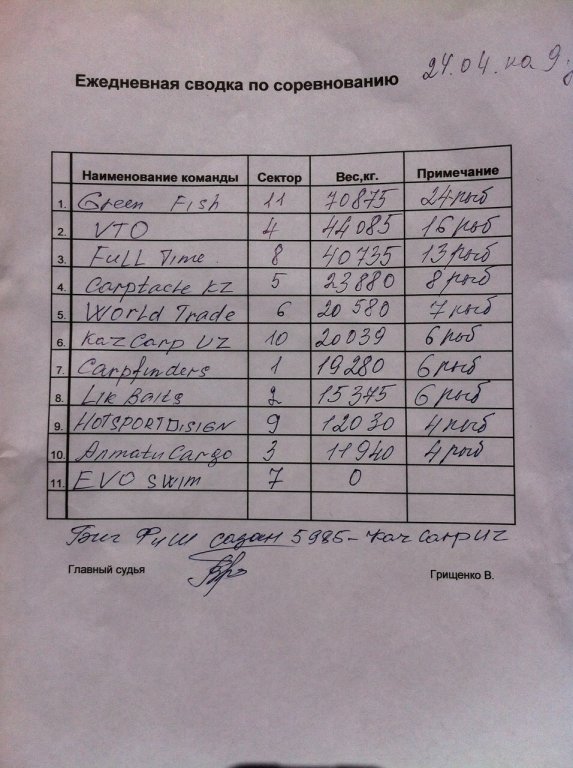 24.04. на 9
Ежедневная сводка по соревнованию
Наименование команды Сектор Вес,кг. Примечание
1. Green Fish 11 70875 24 рыб
2. VTO 4 44085 16 рыб
3. Full Time. 8 40735 13 рыб
4. Carptacle KZ 5 23880 8 рыб
5. World Trade 6 20580 7 рыб
6. Kaz Carp UZ 10 20039 6 рыб
7. Carpfinders 1 19280 6 рыб
8. Lik Baits 2 15375 6 рыб
9. HOTSPORTDISIGN 9 12030 4 рыб
10. Anmatu Cargo 3 11940 4 рыб
11. EVO SWIM 7 0
Биг Фиш сазан 5985 - Kaz Carp UZ
Главный судья Грищенко В.